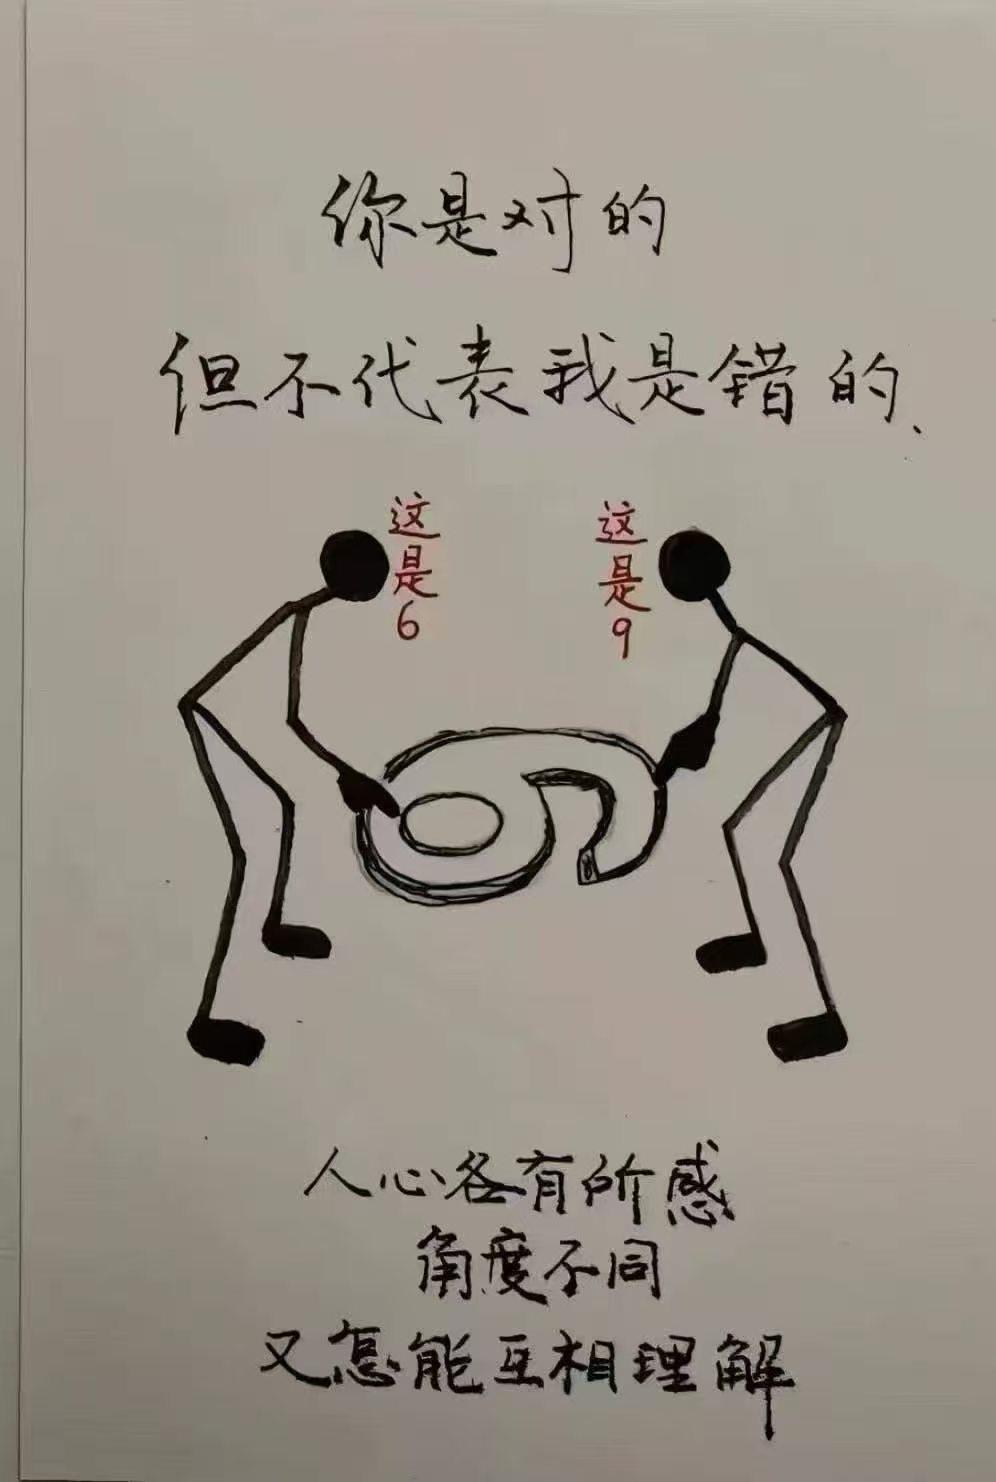 你是对的
但不代表我是错的、
这是6
这是9
人心各有所感
角度不同
又怎能互相理解